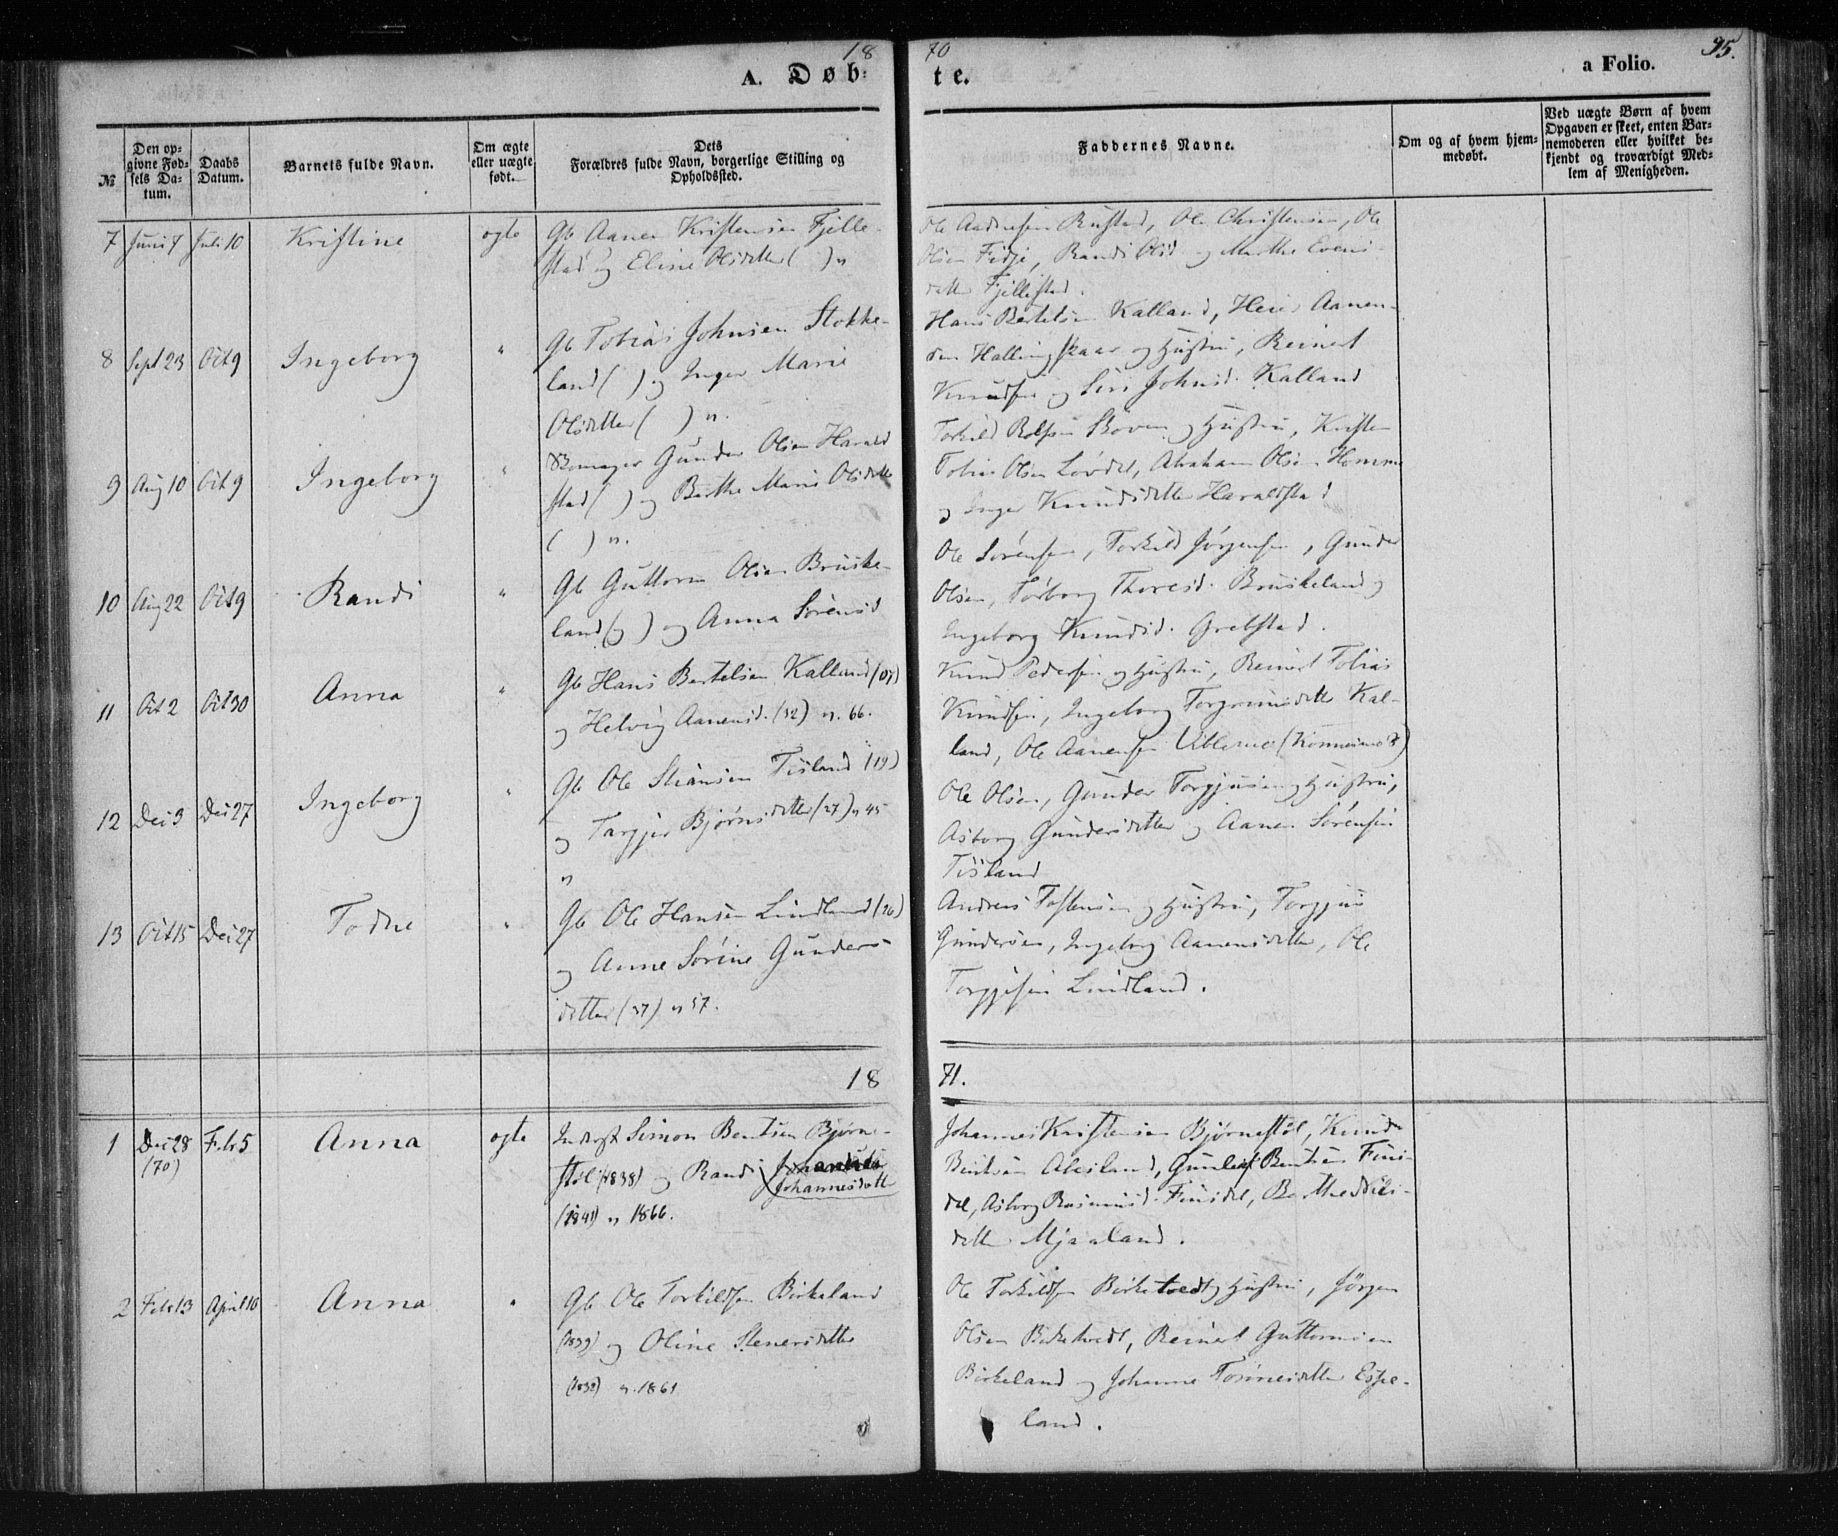 18 70 95.
A. Døb: te. a Folio.
№
Den opgivne Fødsels Datum.
Daabs Datum.
Barnets fulde Navn.
Om ægte eller uægte født.
Dets Forældres fulde Navn, borgerlige Stilling og Opholdssted.
Faddernes Navne.
Om og af hvem hjemmedøbt.
Ved uægte Børn af hvem Opgaven er skeet, enten Barnemoderen eller hvilket bekjendt og troværdigt Medlem af Menigheden.
7 Juni 7 Juli 10 Kristine ægte
Gb Aanen Kristensen Fjelle-
stad og Eline Olsdatter ( ) "
Ole Aadnesen Rustad, Ole Christensen, Ole
Olsen Fidje, Randi Olsd og Marthe Evens-
datter Fjellestad.
8 Sept 23 Oct 9 Ingeborg "
Gb Tobias Johnsen Stokke-
land ( ) og Inger Marie
Olsdatter ( ) ".
Hans Bertelsen Kalland, Aanen-
sen Hallingskaar og Hustru, Reinert
Knudsen og Siri Johnsd. Kalland
9 Aug 10 Oct 9 Ingeborg "
Gunder Olsen Harald
stad ( ) og Berthe Marie Olsdatter
( ) ".
Torkild Rolfsen Skoven og Hustru, Kristen
Tobias Olsen Løvdal, Abraham Olsen Homme
og Inger Knudsdatter Haraldstad
10 Aug 22 Oct 9 Randi "
Gb Guttorm Olsen Bruske-
land ( ) og Anna Sørensd
Ole Sørensen, Torkild Jørgensen, Gunder
Olsen, Torborg Thoresd. Bruskeland og
Ingeborg Knudsd. Grebstad.
11 Oct 2 Oct 30 Anna "
Gb Hans Bertelsen Kalland (07)
og Helvig Aanensd. (32) ". 66.
Knud Pedersen og Hustru, Reinert Tobias
Knudsen, Ingeborg Torgrimsdatter Kal-
land, Ole Aanensen
12 Dec 3 Dec 27 Ingeborg "
Gb Ole Stiansen Tisland (19)
og Targjer Bjørnsdatter (27) " 45
"
Ole Olsen, Gunder Torgjusen og Hustru,
Asborg Gundersdatter og Aanen Sørensen
Tisland
13 Oct 15 Dec 27 Todne "
Gb Ole Hansen Lindland (26)
og Anne Sørine Gunders-
datter (37) " 57.
Andreas Tostensen og Hustru, Torgjus
Gundersen, Ingeborg Aanensdatter, Ole
Torgjusen Lindland.
18 71.
1 Dec 28 (70) Febr 5 Anna ægte
Inderst Simon Bentsen Bjørne-
støl (1838) og Randi Johannesdatter
(1841) " 1866.
Johannes Kristensen Bjørnestøl, Knud
Bentsen Alesland, Gunleif Bentsen Fins-
dal, Asborg Rasmusd. Finsdal, Berthe Nils-
datter Mjaaland.
2 Febr 13 April 16 Anna "
Gb Ole Torkildsen Birkeland
(1839) og Oline Stenersdatter
(1832) ". 1861
Ole Torkildsen Birketvedt og Hustru, Jørgen
Olsen Birketvedt, Reinert Guttormsen
Birkeland og Johanne Tørresdatter Espe-
land.